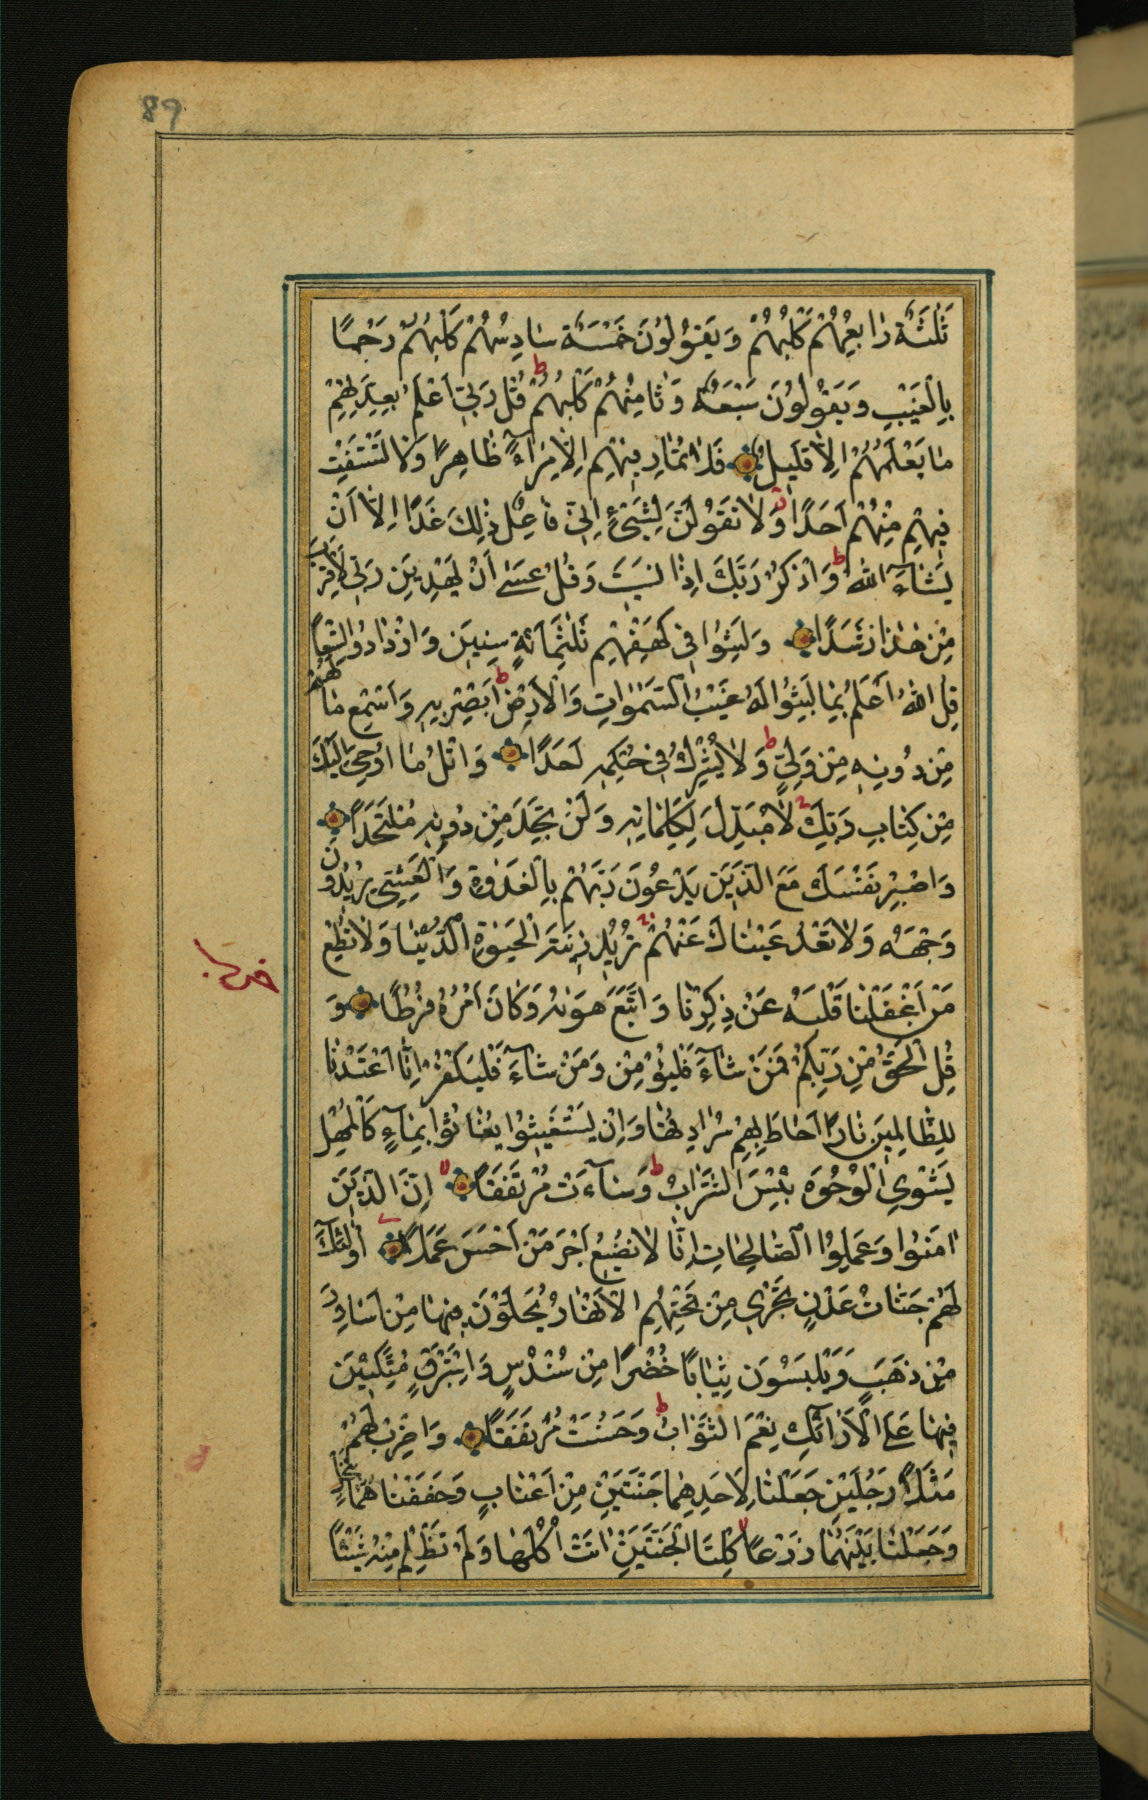 89
ثَلٰثَةٌ رَابِعُهُمْ كَلْبُهُمْ وَيَقُولُونَ خَمْسَةٌ سَادِسُهُمْ كَلْبُهُمْ رَجْمًا
بِالْغَيْبِ وَيَقُولُونَ سَبْعَةٌ وَثَامِنُهُمْ كَلْبُهُمْ ط قُلْ رَبِّي اَعْلَمُ بِعِدَّتِهِمْ
مَا يَعْلَمُهُمْ اِلَّا قَلِيلٌ فَلَا تُمَارِ فِيهِمْ اِلَّا مِرَآءً ظَاهِرًا وَلَا تَسْتَفْتِ
فِيهِمْ مِنْهُمْ اَحَدًا وَلَا تَقُولَنَّ لِشَيْءٍ اِنِّي فَاعِلٌ ذٰلِكَ غَدًا اِلَّا اَنْ
يَشَآءَ اللّٰهُ ط وَاذْكُرْ رَبَّكَ اِذَا نَسِيتَ وَقُلْ عَسٰى اَنْ يَهْدِيَنِ رَبِّي لِاَقْرَبَ
مِنْ هٰذَا رَشَدًا وَلَبِثُوا فِي كَهْفِهِمْ ثَلٰثَمِائَةٍ سِنِينَ وَازْدَادُوا تِسْعًا
قُلِ اللّٰهُ اَعْلَمُ بِمَا لَبِثُوا لَهُ غَيْبُ السَّمٰوَاتِ وَالْاَرْضِ ط اَبْصِرْ بِهِ وَاَسْمِعْ مَا لَهُمْ
مِنْ دُونِهِ مِنْ وَلِيٍّ ط وَلَا يُشْرِكُ فِي حُكْمِهِ اَحَدًا وَاتْلُ مَا اُوحِيَ اِلَيْكَ
مِنْ كِتَابِ رَبِّكَ لَا مُبَدِّلَ لِكَلِمَاتِهِ وَلَنْ تَجِدَ مِنْ دُونِهِ مُلْتَحَدًا
وَاصْبِرْ نَفْسَكَ مَعَ الَّذِينَ يَدْعُونَ رَبَّهُمْ بِالْغَدٰوةِ وَالْعَشِيِّ يُرِيدُونَ
وَجْهَهُ وَلَا تَعْدُ عَيْنَاكَ عَنْهُمْ تُرِيدُ زِينَةَ الْحَيٰوةِ الدُّنْيَا وَلَا تُطِعْ
مَنْ اَغْفَلْنَا قَلْبَهُ عَنْ ذِكْرِنَا وَاتَّبَعَ هَوٰىهُ وَكَانَ اَمْرُهُ فُرُطًا وَ
قُلِ الْحَقُّ مِنْ رَبِّكُمْ فَمَنْ شَآءَ فَلْيُؤْمِنْ وَمَنْ شَآءَ فَلْيَكْفُرْ اِنَّا اَعْتَدْنَا
لِلظَّالِمِينَ نَارًا اَحَاطَ بِهِمْ سُرَادِقُهَا وَاِنْ يَسْتَغِيثُوا يُغَاثُوا بِمَآءٍ كَالْمُهْلِ
يَشْوِي الْوُجُوهَ بِئْسَ الشَّرَابُ ط وَسَآءَتْ مُرْتَفَقًا لا اِنَّ الَّذِينَ
اٰمَنُوا وَعَمِلُوا الصَّالِحَاتِ اِنَّا لَا نُضِيعُ اَجْرَ مَنْ اَحْسَنَ عَمَلًا اُولٰٓئِكَ
لَهُمْ جَنَّاتُ عَدْنٍ تَجْرِي مِنْ تَحْتِهِمُ الْاَنْهَارُ يُحَلَّوْنَ فِيهَا مِنْ اَسَاوِرَ
مِنْ ذَهَبٍ وَيَلْبَسُونَ ثِيَابًا خُضْرًا مِنْ سُنْدُسٍ وَاِسْتَبْرَقٍ مُتَّكِئِينَ
فِيهَا عَلَى الْاَرَآئِكِ نِعْمَ الثَّوَابُ ط وَحَسُنَتْ مُرْتَفَقًا وَاضْرِبْ لَهُمْ
مَثَلًا رَجُلَيْنِ جَعَلْنَا لِاَحَدِهِمَا جَنَّتَيْنِ مِنْ اَعْنَابٍ وَحَفَفْنَاهُمَا
وَجَعَلْنَا بَيْنَهُمَا زَرْعًا لا كِلْتَا الْجَنَّتَيْنِ اٰتَتْ اُكُلَهَا وَلَمْ تَظْلِمْ مِنْهُ شَيْئًا